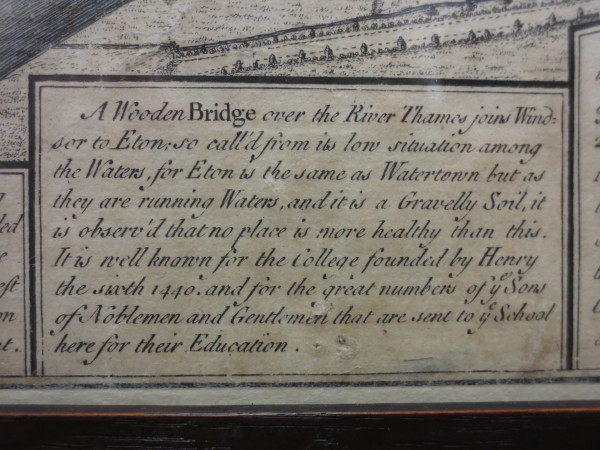 A Wooden Bridge over the River Thames joins Wind-
sor to Eton; so call'd from its low situation among
the Waters, for Eton is the same as Watertown but as
they are running Waters, and it is a Gravelly Soil, it
is observ'd that no place is more healthy than this.
It is well known for the College founded by Henry
the sixth 1440. and for the great numbers of yᵉ Sons
of Noblemen and Gentlemen that are sent to yᵉ School
here for their Education.